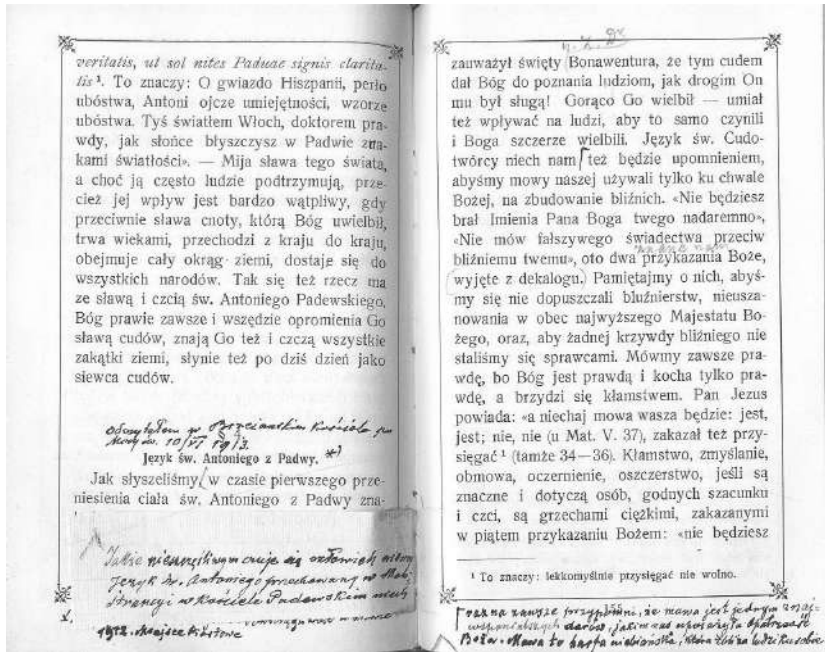 veritatis, ut sol nites Paduae signis clarita-
tis¹. To znaczy: O gwiazdo Hiszpanii, perło
ubóstwa, Antoni ojcze umiejętności, wzorze
ubóstwa. Tyś światłem Włoch, doktorem pra-
wdy, jak słońce błyszczysz w Padwie zna-
kami światłości». — Mija sława tego świata,
a choć ją często ludzie podtrzymują, prze-
cież jej wpływ jest bardzo wątpliwy, gdy
przeciwnie sława cnoty, którą Bóg uwielbił,
trwa wiekami, przechodzi z kraju do kraju,
obejmuje cały okrąg ziemi, dostaje się do
wszystkich narodów. Tak się też rzecz ma
ze sławą i czcią św. Antoniego Padewskiego.
Bóg prawie zawsze i wszędzie opromienia Go
sławą cudów, znają Go też i czczą wszystkie
zakątki ziemi, słynie też po dziś dzień jako
siewca cudów.
w kościele
10/VI
Język św. Antoniego z Padwy. *)
Jak słyszeliśmy w czasie pierwszego prze-
niesienia ciała św. Antoniego z Padwy zna-
się człowiek
język św. Antoniego przechowany w
w kościele Padewskim
1912. Miejsce
zauważył święty Bonawentura, że tym cudem
dał Bóg do poznania ludziom, jak drogim On
mu był sługą! Gorąco Go wielbił — umiał
też wpływać na ludzi, aby to samo czynili
i Boga szczerze wielbili. Język św. Cudo-
twórcy niech nam też będzie upomnieniem,
abyśmy mowy naszej używali tylko ku chwale
Bożej, na zbudowanie bliźnich. «Nie będziesz
brał Imienia Pana Boga twego nadaremno»,
«Nie mów fałszywego świadectwa przeciw
bliźniemu twemu», oto dwa przykazania Boże,
wyjęte z dekalogu. Pamiętajmy o nich, abyś-
my się nie dopuszczali bluźnierstw, nieusza-
nowania w obec najwyższego Majestatu Bo-
żego, oraz, aby żadnej krzywdy bliźniego nie
staliśmy się sprawcami. Mówmy zawsze pra-
wdę, bo Bóg jest prawdą i kocha tylko pra-
wdę, a brzydzi się kłamstwem. Pan Jezus
powiada: «a niechaj mowa wasza będzie: jest,
jest; nie, nie (u Mat. V. 37), zakazał też przy-
sięgać ¹ (tamże 34—36). Kłamstwo, zmyślanie,
obmowa, oczernienie, oszczerstwo, jeśli są
znaczne i dotyczą osób, godnych szacunku
i czci, są grzechami ciężkimi, zakazanymi
w piątem przykazaniu Bożem: «nie będziesz
¹ To znaczy: lekkomyślnie przysięgać nie wolno.
zawsze przypomni, że mowa jest jednym z naj-
wspanialszych darów, jakimi nas Opatrzność
Boża. Mowa to harfa niebiańska, która